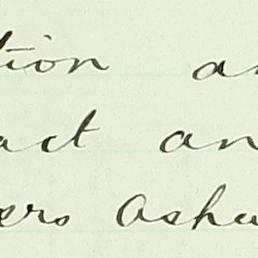 tion an
act an
ers ashu